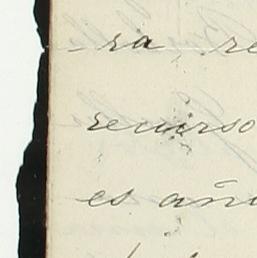 -ra re
recurso
es añ